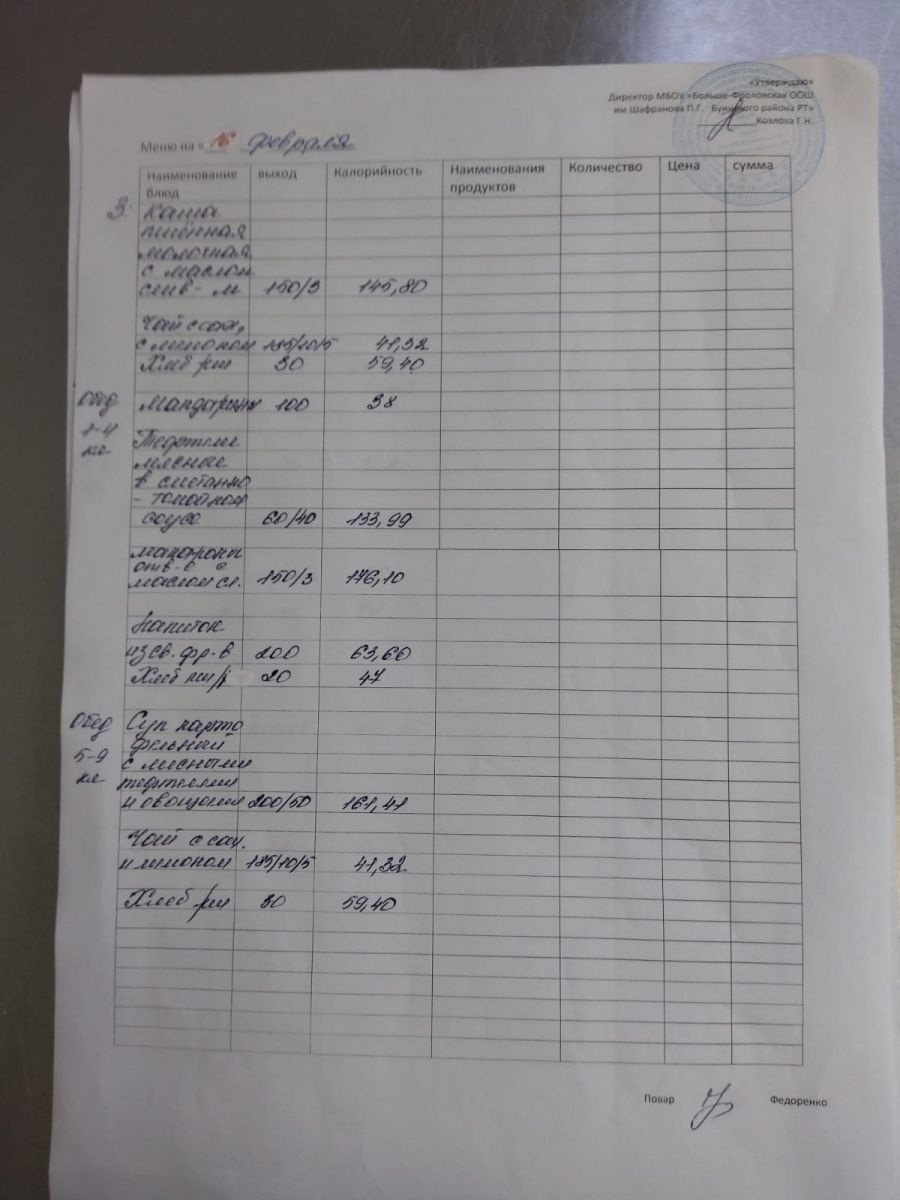 «Утверждаю»
Директор МБОУ «Больше-Фроловская ООШ
им Шафранова П.Г. Буинского района РТ»
Козлова Г.Н.
Меню на « 16 февраля
Наименование блюд выход Калорийность Наименования продуктов Количество Цена сумма
З. Каша
пшённая
молочная
с маслом
слив - м 150/3 145,80
Чай с сах,
с лимоном 185/10/5 41,32
Хлеб рж 30 59,40
Обед Мандарины 100 38
1-4
кл Тефтели
мясные
в сметанно
- томатном
соусе 60/40 133,99
макароны
отв-е с
маслом сл. 150/3 176,10
Напиток
из св. фр-в 200 63,60
Хлеб пш/ 20 47
Обед Суп карто
фельный
5-9 с мясными
кл тефтелями
и овощами 200/50 161,41
Чай с сах.
и лимоном 185/10/5 41,32
Хлеб рж 30 59,40
Повар Федоренко